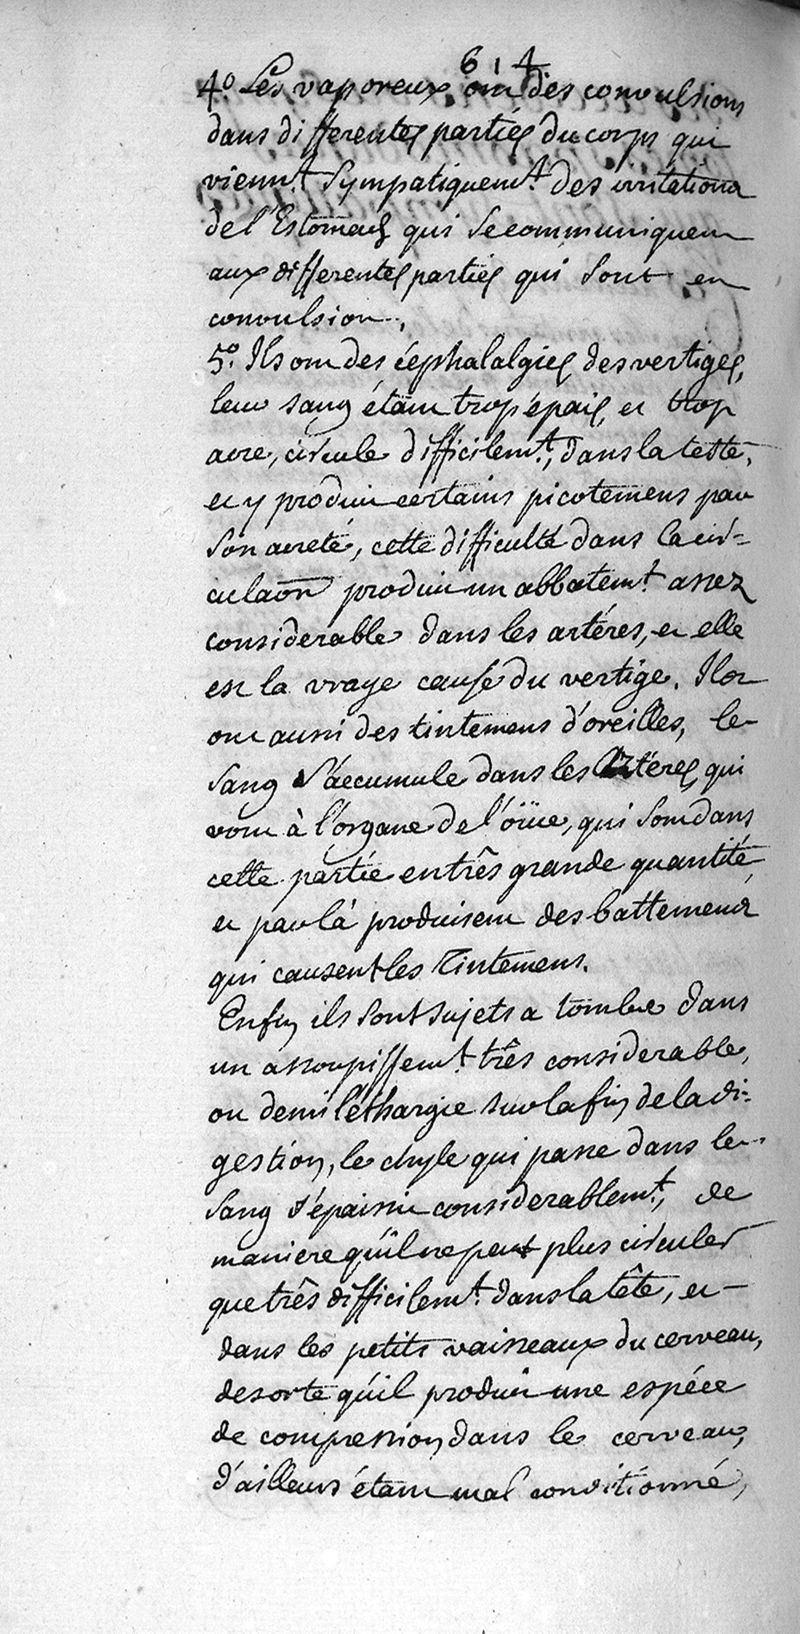 614
4.° Les vaporeux ont des convulsions
dans differentes partiés du corps qui
vienn.t Sympatiquem.t des irritations
de l'Estomach qui Se communiquent
aux differentes partiés qui Sont en
convulsion.
5.° Ils ont des céphalalgies des vertiges,
leur sang étant trop épais, et trop
acre, circule difficilem.t, dans la tette,
et y produit certains picotemens par
Son acreté, cette difficulté dans la cir=
culaõn produit un abbatem.t assez
considerable dans les artéres, et elle
est la vraye cause du vertige. Ils
ont aussi des tintemens d'oreilles, le
Sang S'accumule dans les Artéres, qui
vont à l'organe de l'öüie, qui Sont dans
cette partie en três grande quantité
et par là produisent des battemens
qui causent les Tintemens.
Enfin ils Sont Sujets a tomber dans
un assoupissem.t três considerable,
ou demi léthargie sur la fin de la di=
gestion, le chyle qui passe dans le
Sang s'épaissit considerablem.t, de
maniere qu'il ne peut plus circuler
que três difficilem.t dans la tête, et
dans les petits vaisseaux du cerveau,
de sorte qu'il produit une espéce
de compression dans le cerveau,
d'ailleurs étant mal conditionné,